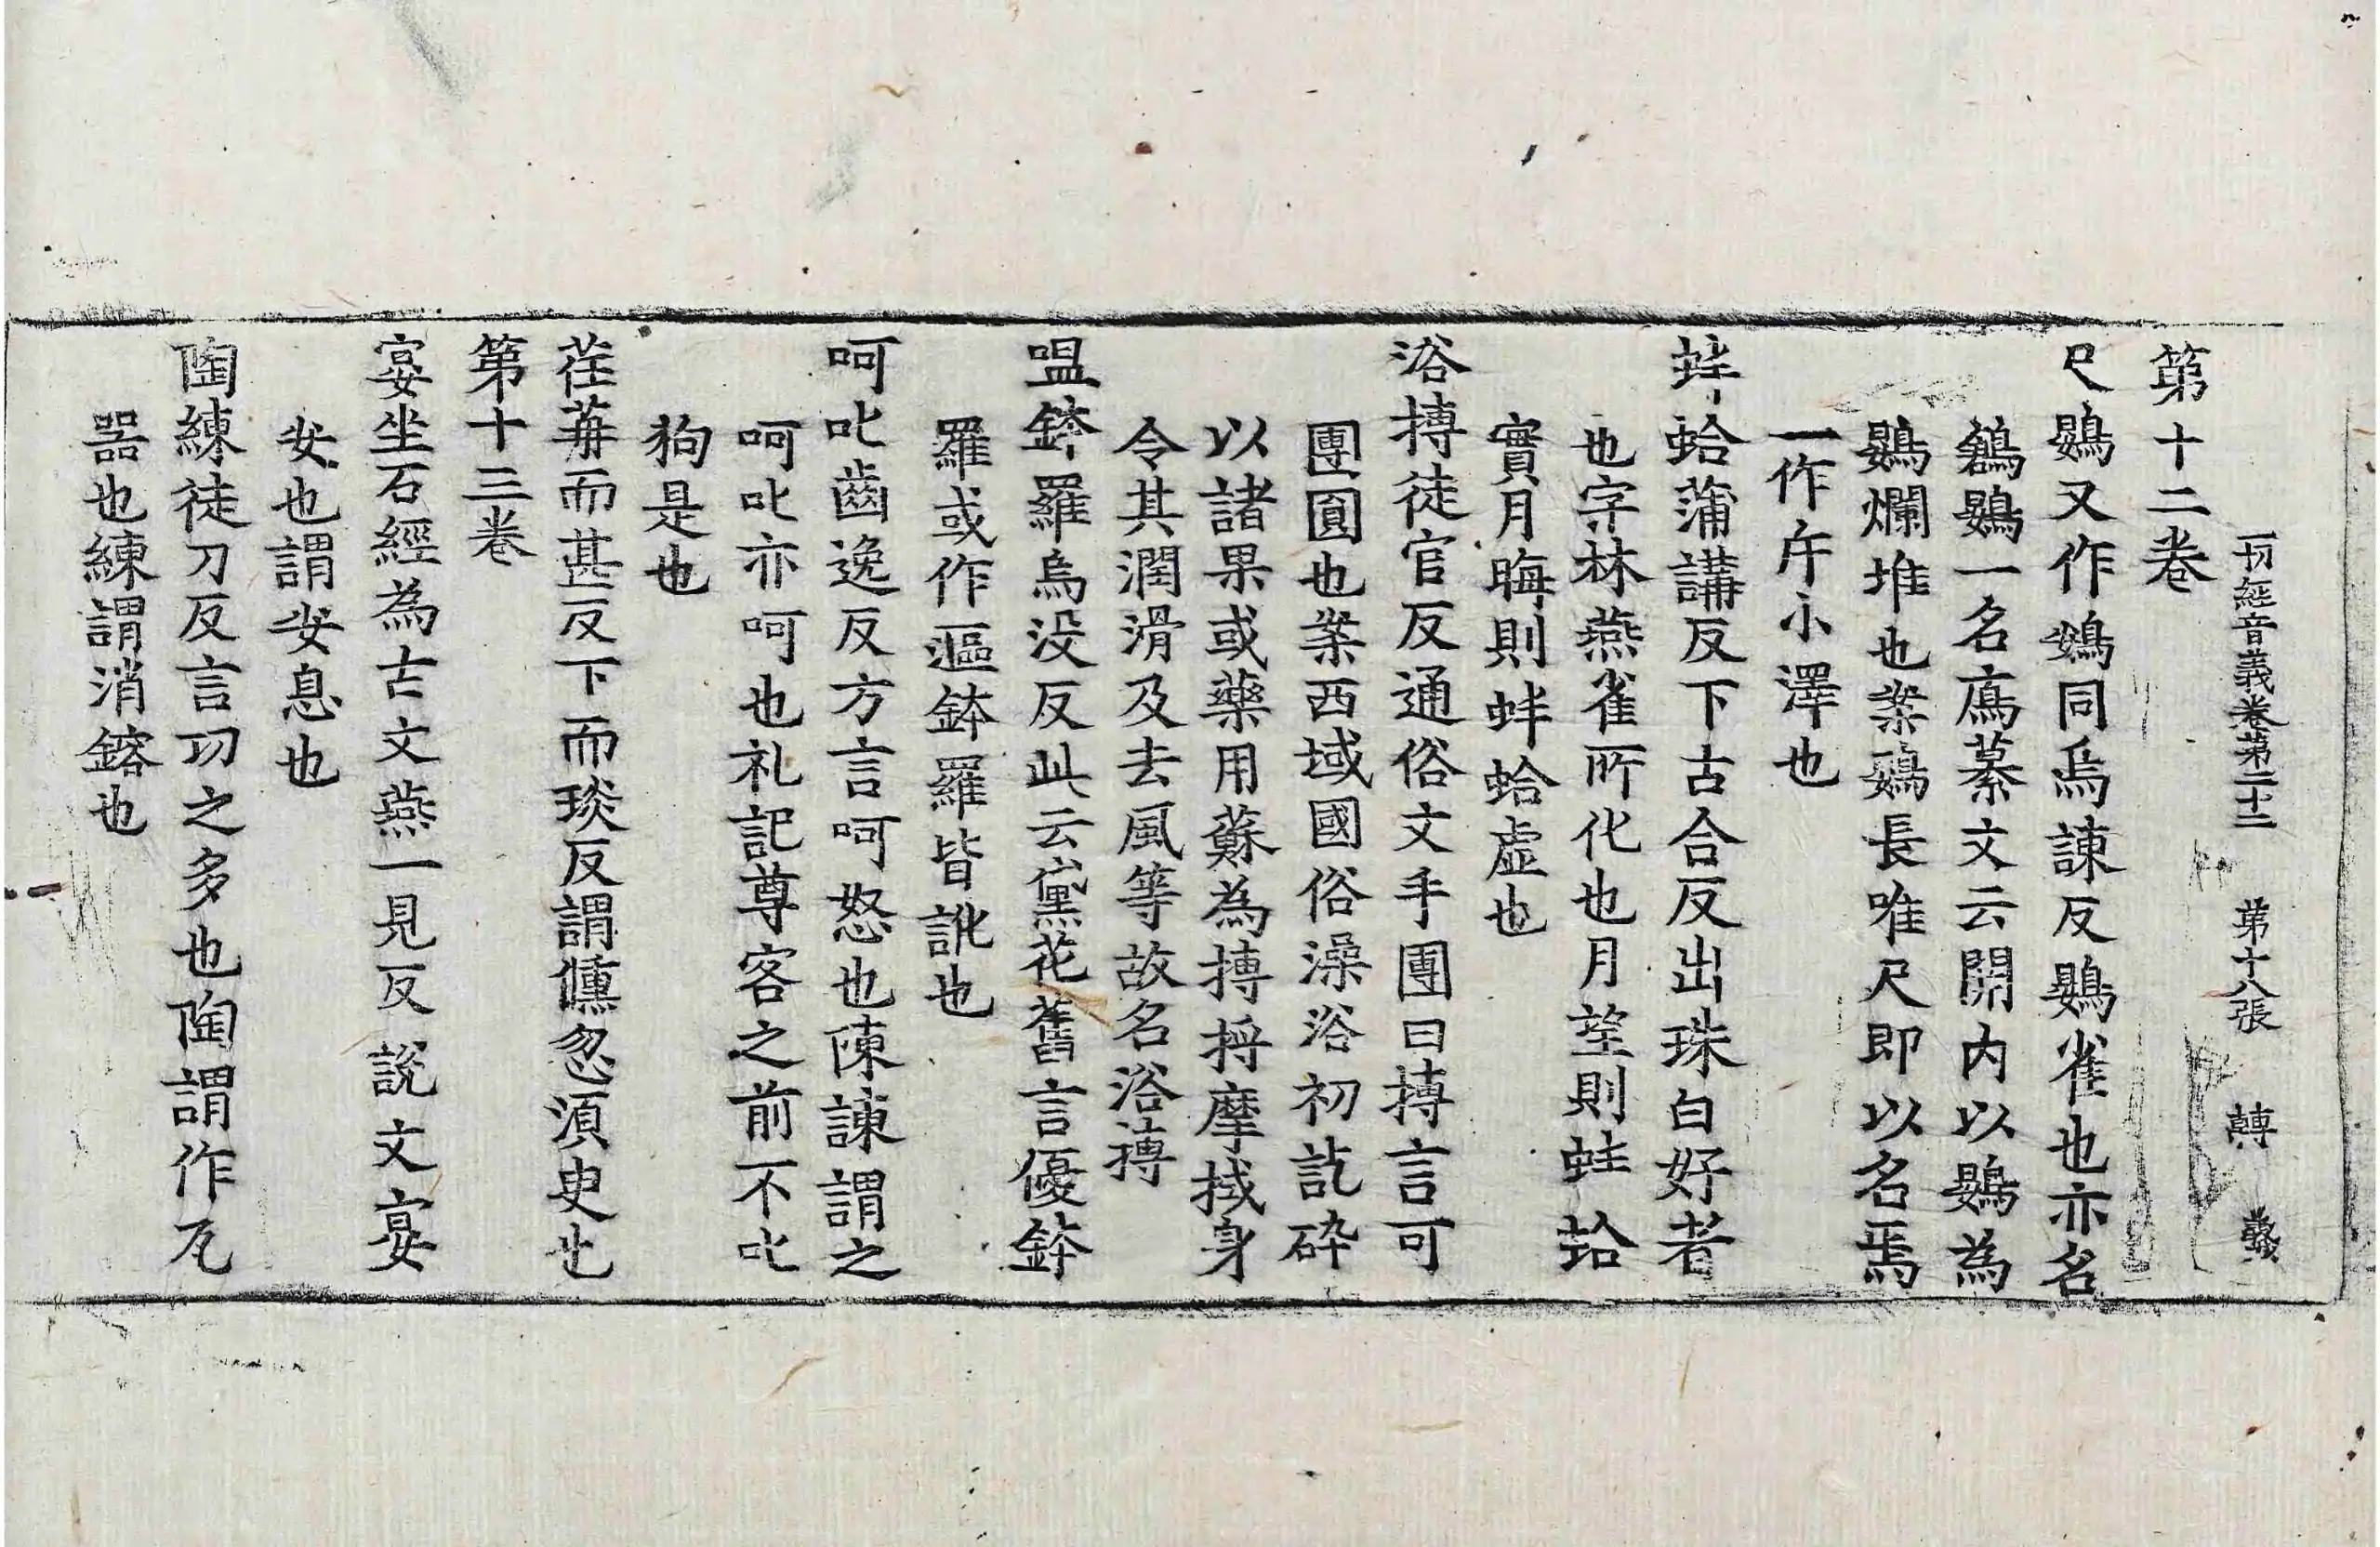 一切經音義卷第二十二 第十八張 轉
第十二卷
尺鷃又作鴳同烏諫反鷃雀也亦名
鶕鷃一名鳸纂文云關內以鷃為
鷃爛堆也案鴳長唯尺即以名焉
一作斥小澤也
蚌蛤蒲講反下古合反出珠白好者
也字林燕雀所化也月望則蚌蛤
實月晦則蚌蛤虛也
浴摶徒官反通俗文手團曰摶言可
團圓也案西域國俗澡浴初訖碎
以諸果或藥用蘇為摶捋摩拭身
令其潤滑及去風等故名浴摶
嗢鉢羅烏沒反此云黛花舊言優鉢
羅或作漚鉢羅皆訛也
呵叱齒逸反方言呵怒也陳諫謂之
呵叱亦呵也礼記尊客之前不叱
狗是也
荏苒而甚反下而琰反謂儵忽湏臾也
第十三卷
宴坐石經為古文燕一見反說文宴
安也謂安息也
陶練徒刀反言功之多也陶謂作瓦
器也練謂消鎔也